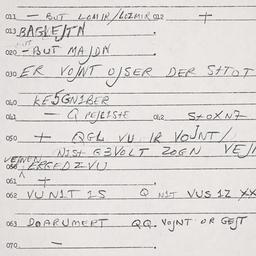 011 — BUT LOMIR/LOZMIR 012 +
013 BAGLEJTN
020 — BUT MAJDN
030 ER VOJNT OJSER DER STTOT
040 KESGNIBER
041 — Q PEJLISTE 042 STOXN7
050 + QGL VU IR VOJNT/
NIST GEVOLT ZOGN VEJ
VEMEN
ERGEDZVU
061 +
062 VUNIT IS Q NIT VUS IZ XX
063 DOARUMERT QQ. VOJNT OR GEJT
070 —